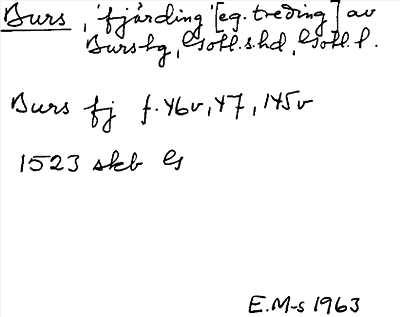 Burs, 'fjärding' [eg. treding] av
Burs hg, Gotl.s.hd, Gotl.l.
Burs fj f. 46v, 47, 145v
1523 skb G
E.M-s 1963